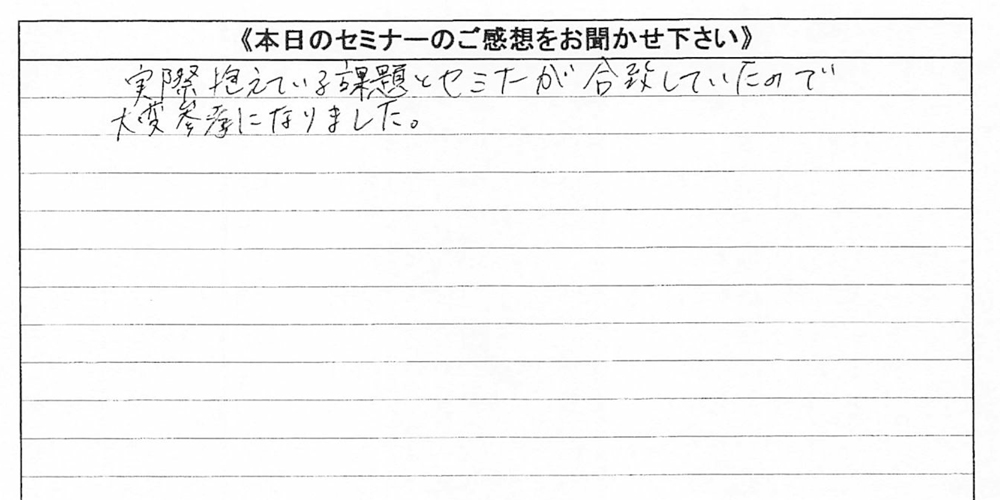 《本日のセミナーのご感想をお聞かせ下さい》
実際抱えている課題とセミナーが合致していたので
大変参考になりました。